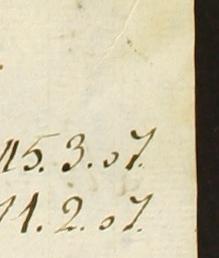 15.3.07.
11.2.07.